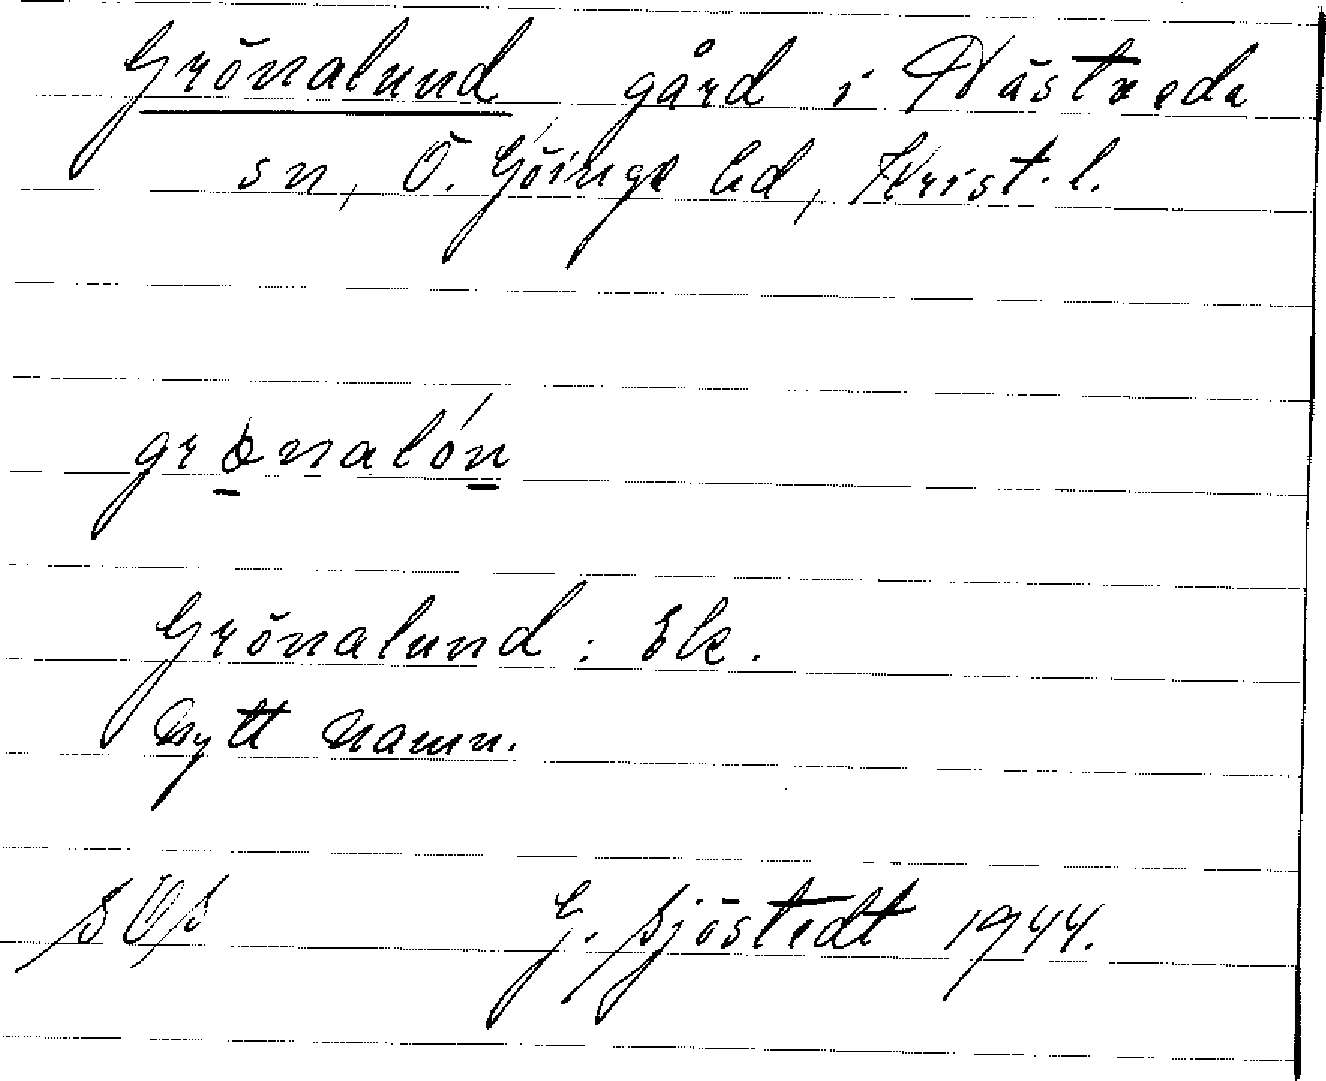 Grönalund gård i Hästveda
sn, Ö. Göinge hd, Krist. l.
grønalón
Grönalund: Ek.
Nytt namn.
SOS G. Sjöstedt 1944.